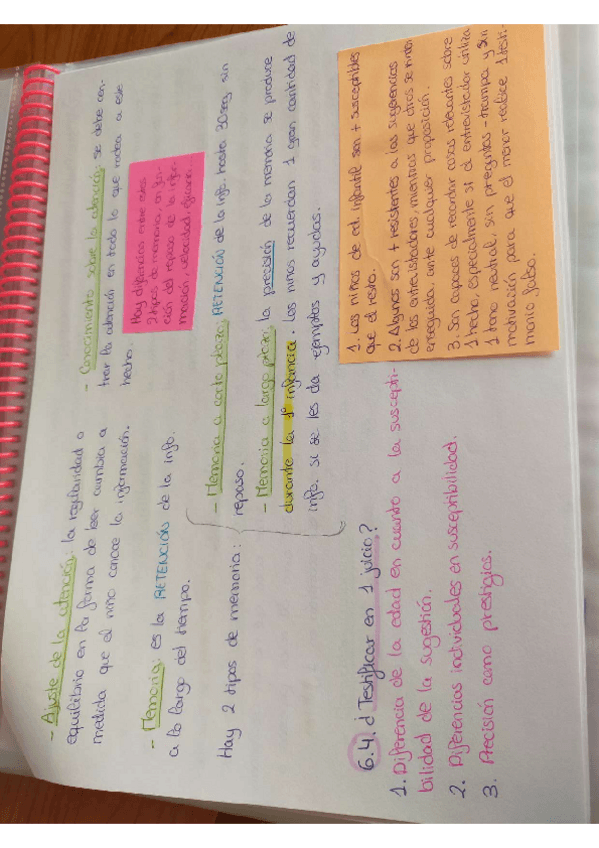 - Ajuste de la atención: la regularidad o
equilibrio en la forma de leer cambia a
medida que el niño conoce la información.
- Conocimiento sobre la atención: se debe cen-
trar la atención en todo lo que rodea a este
hecho.
- Memoria: es la RETENCIÓN de la info.
a lo largo del tiempo.
Hay diferencias entre estos
2 tipos de memoria, en fun-
ción del repaso de la infor-
mación, velocidad, eficacia...
Hay 2 tipos de memoria:
- Memoria a corto plazo: RETENCIÓN de la info. hasta 30 seg sin
repaso.
- Memoria a largo plazo: la precisión de la memoria se produce
durante la 1ª infancia. Los niños recuerdan 1 gran cantidad de
info. si se les da ejemplos y ayudas.
6.4. d Testificar en 1 juicio?
1. Diferencia de la edad en cuanto a la suscepti-
bilidad de la sugestión.
2. Diferencias individuales en susceptibilidad.
3. Precisión como prestigios.
1. Los niños de ed. infantil son + susceptibles
que el resto.
2. Algunos son + resistentes a las sugerencias
de los entrevistadores, mientras que otros se rinden
enseguida ante cualquier proposición.
3. Son capaces de recordar cosas relevantes sobre
1 hecho, especialmente si el entrevistador utiliza
1 tono neutral, sin preguntas-trampa y sin
motivación para que el menor realice 1 testi-
monio falso.